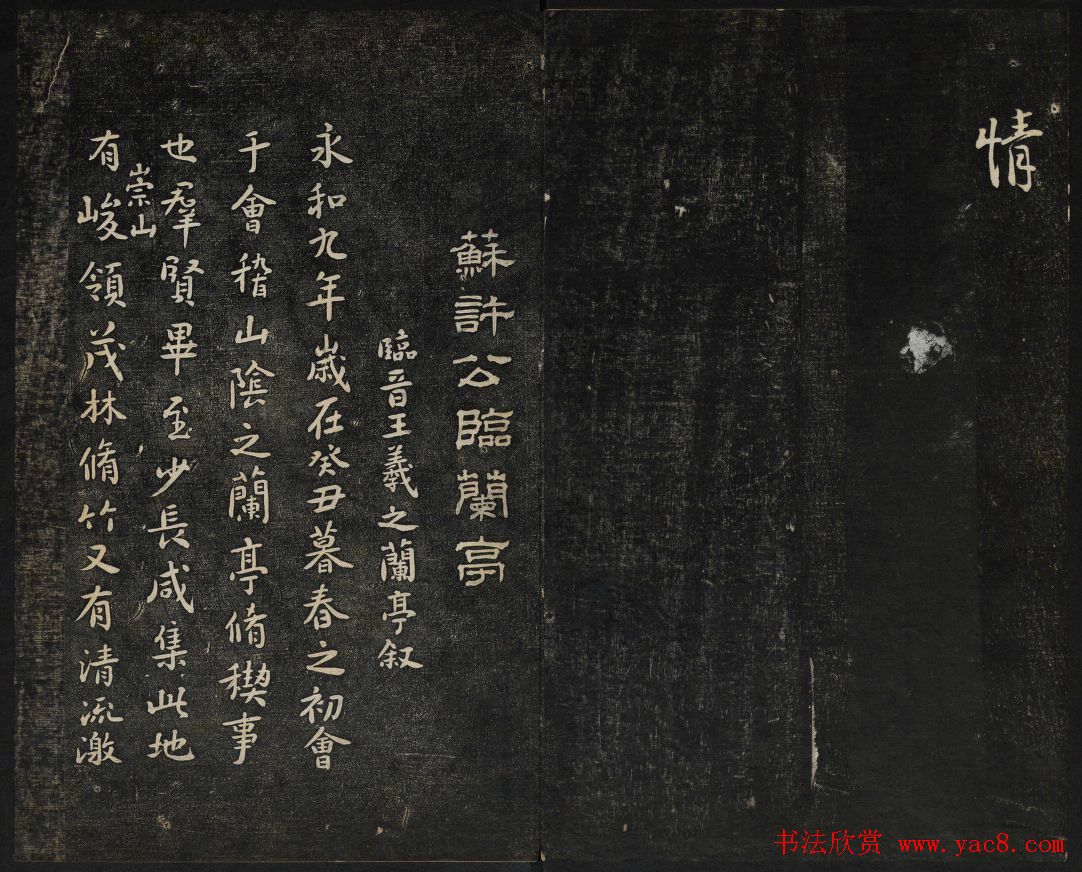 情
蘇許公臨蘭亭
臨晉王羲之蘭亭叙
永和九年歲在癸丑暮春之初會
于會稽山陰之蘭亭脩稧事
也羣賢畢至少長咸集此地
有崇山峻領茂林脩竹又有清流激
书法欣赏 www.yac8.com